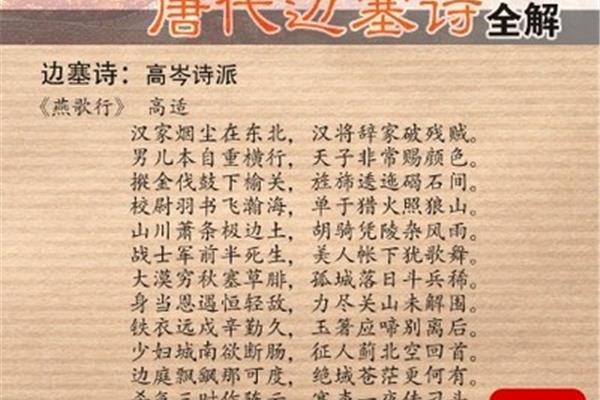 唐代边塞诗全解
边塞诗：高岑诗派
《燕歌行》 高适
汉家烟尘在东北，汉将辞家破残贼。
男儿本自重横行，天子非常赐颜色。
摐金伐鼓下榆关，旌旆逶迤碣石间。
校尉羽书飞瀚海，单于猎火照狼山。
山川萧条极边土，胡骑凭陵杂风雨。
战士军前半死生，美人帐下犹歌舞。
大漠穷秋塞草腓，孤城落日斗兵稀。
身当恩遇恒轻敌，力尽关山未解围。
铁衣远戍辛勤久，玉箸应啼别离后。
少妇城南欲断肠，征人蓟北空回首。
边庭飘飖那可度，绝域苍茫更何有。